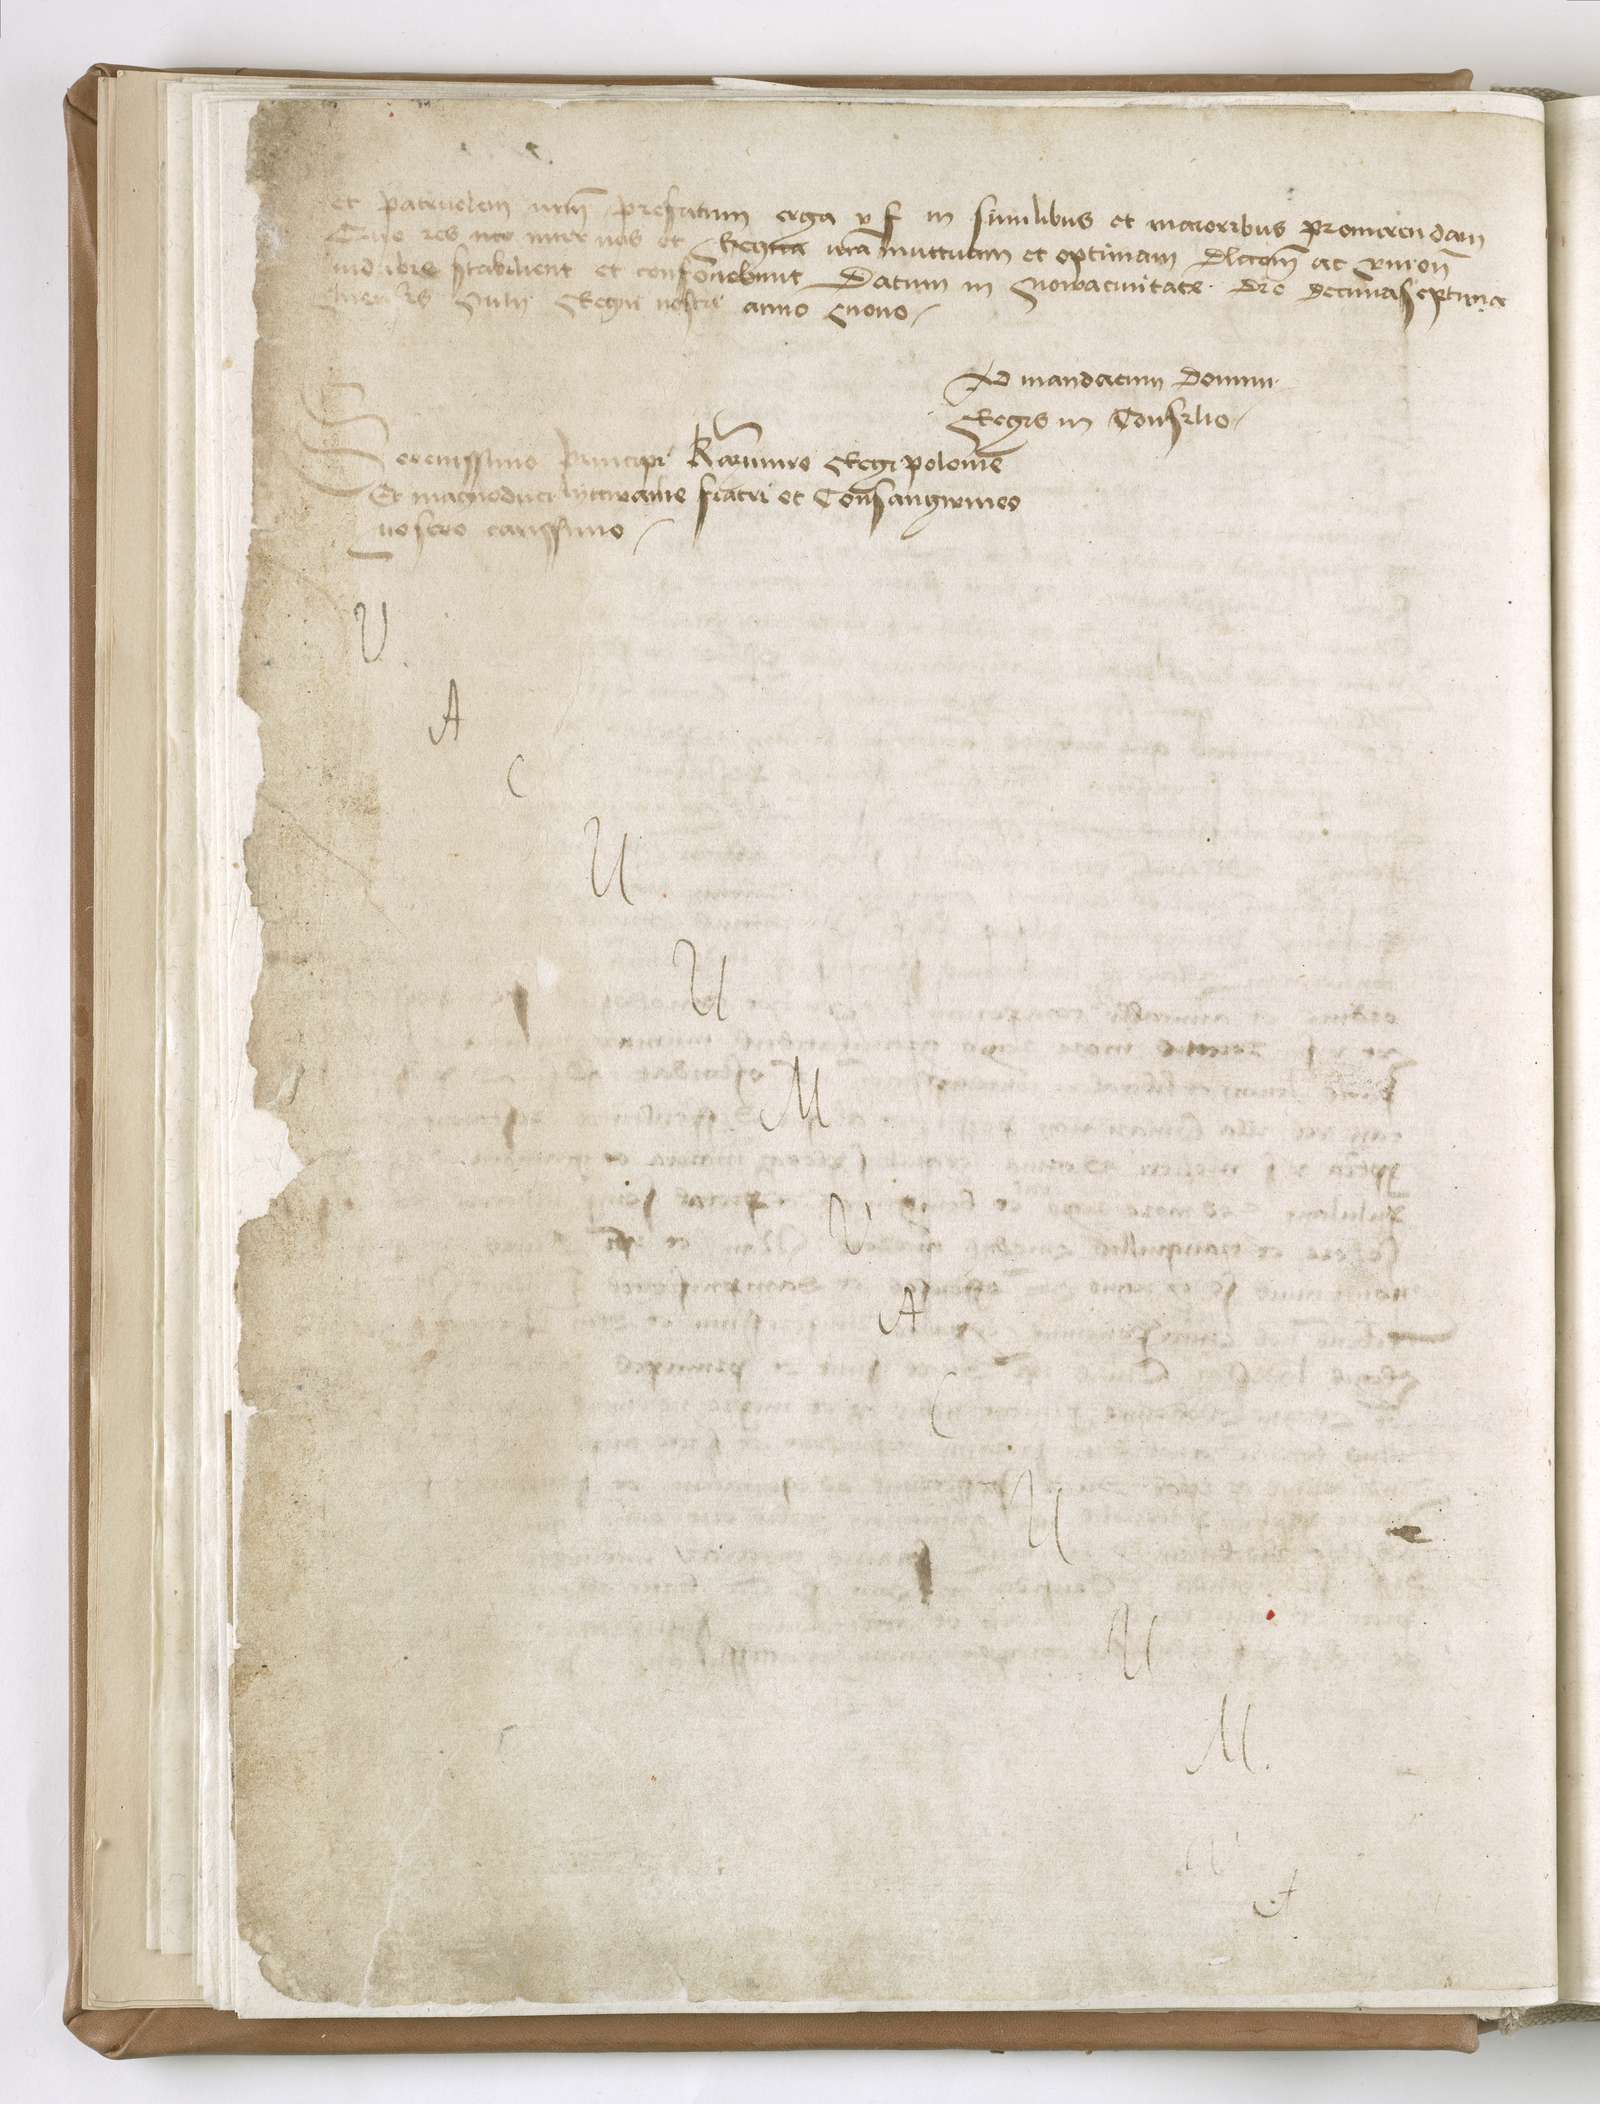 et patruelem nrm̄ prefatum erga v f in similibus et maioribus promerendam
Que res nec inter nos et Regna vrā muttuam et optimam Dlectom̄ ac vnion̄
indubie stabilient et confovebunt Datum in Novacivitate Die Decimaseptima
Mensis Julij Regni nostri anno Nono
Ad mandatum Domini
Regis in Consilio
Serenissimo Principi Kazimiro Regi polonie
Et magnoduci lyttwanie fratri et Consangwineo
nostro carissimo
V
A
C
U
U
M
V
A
C
U
U
M